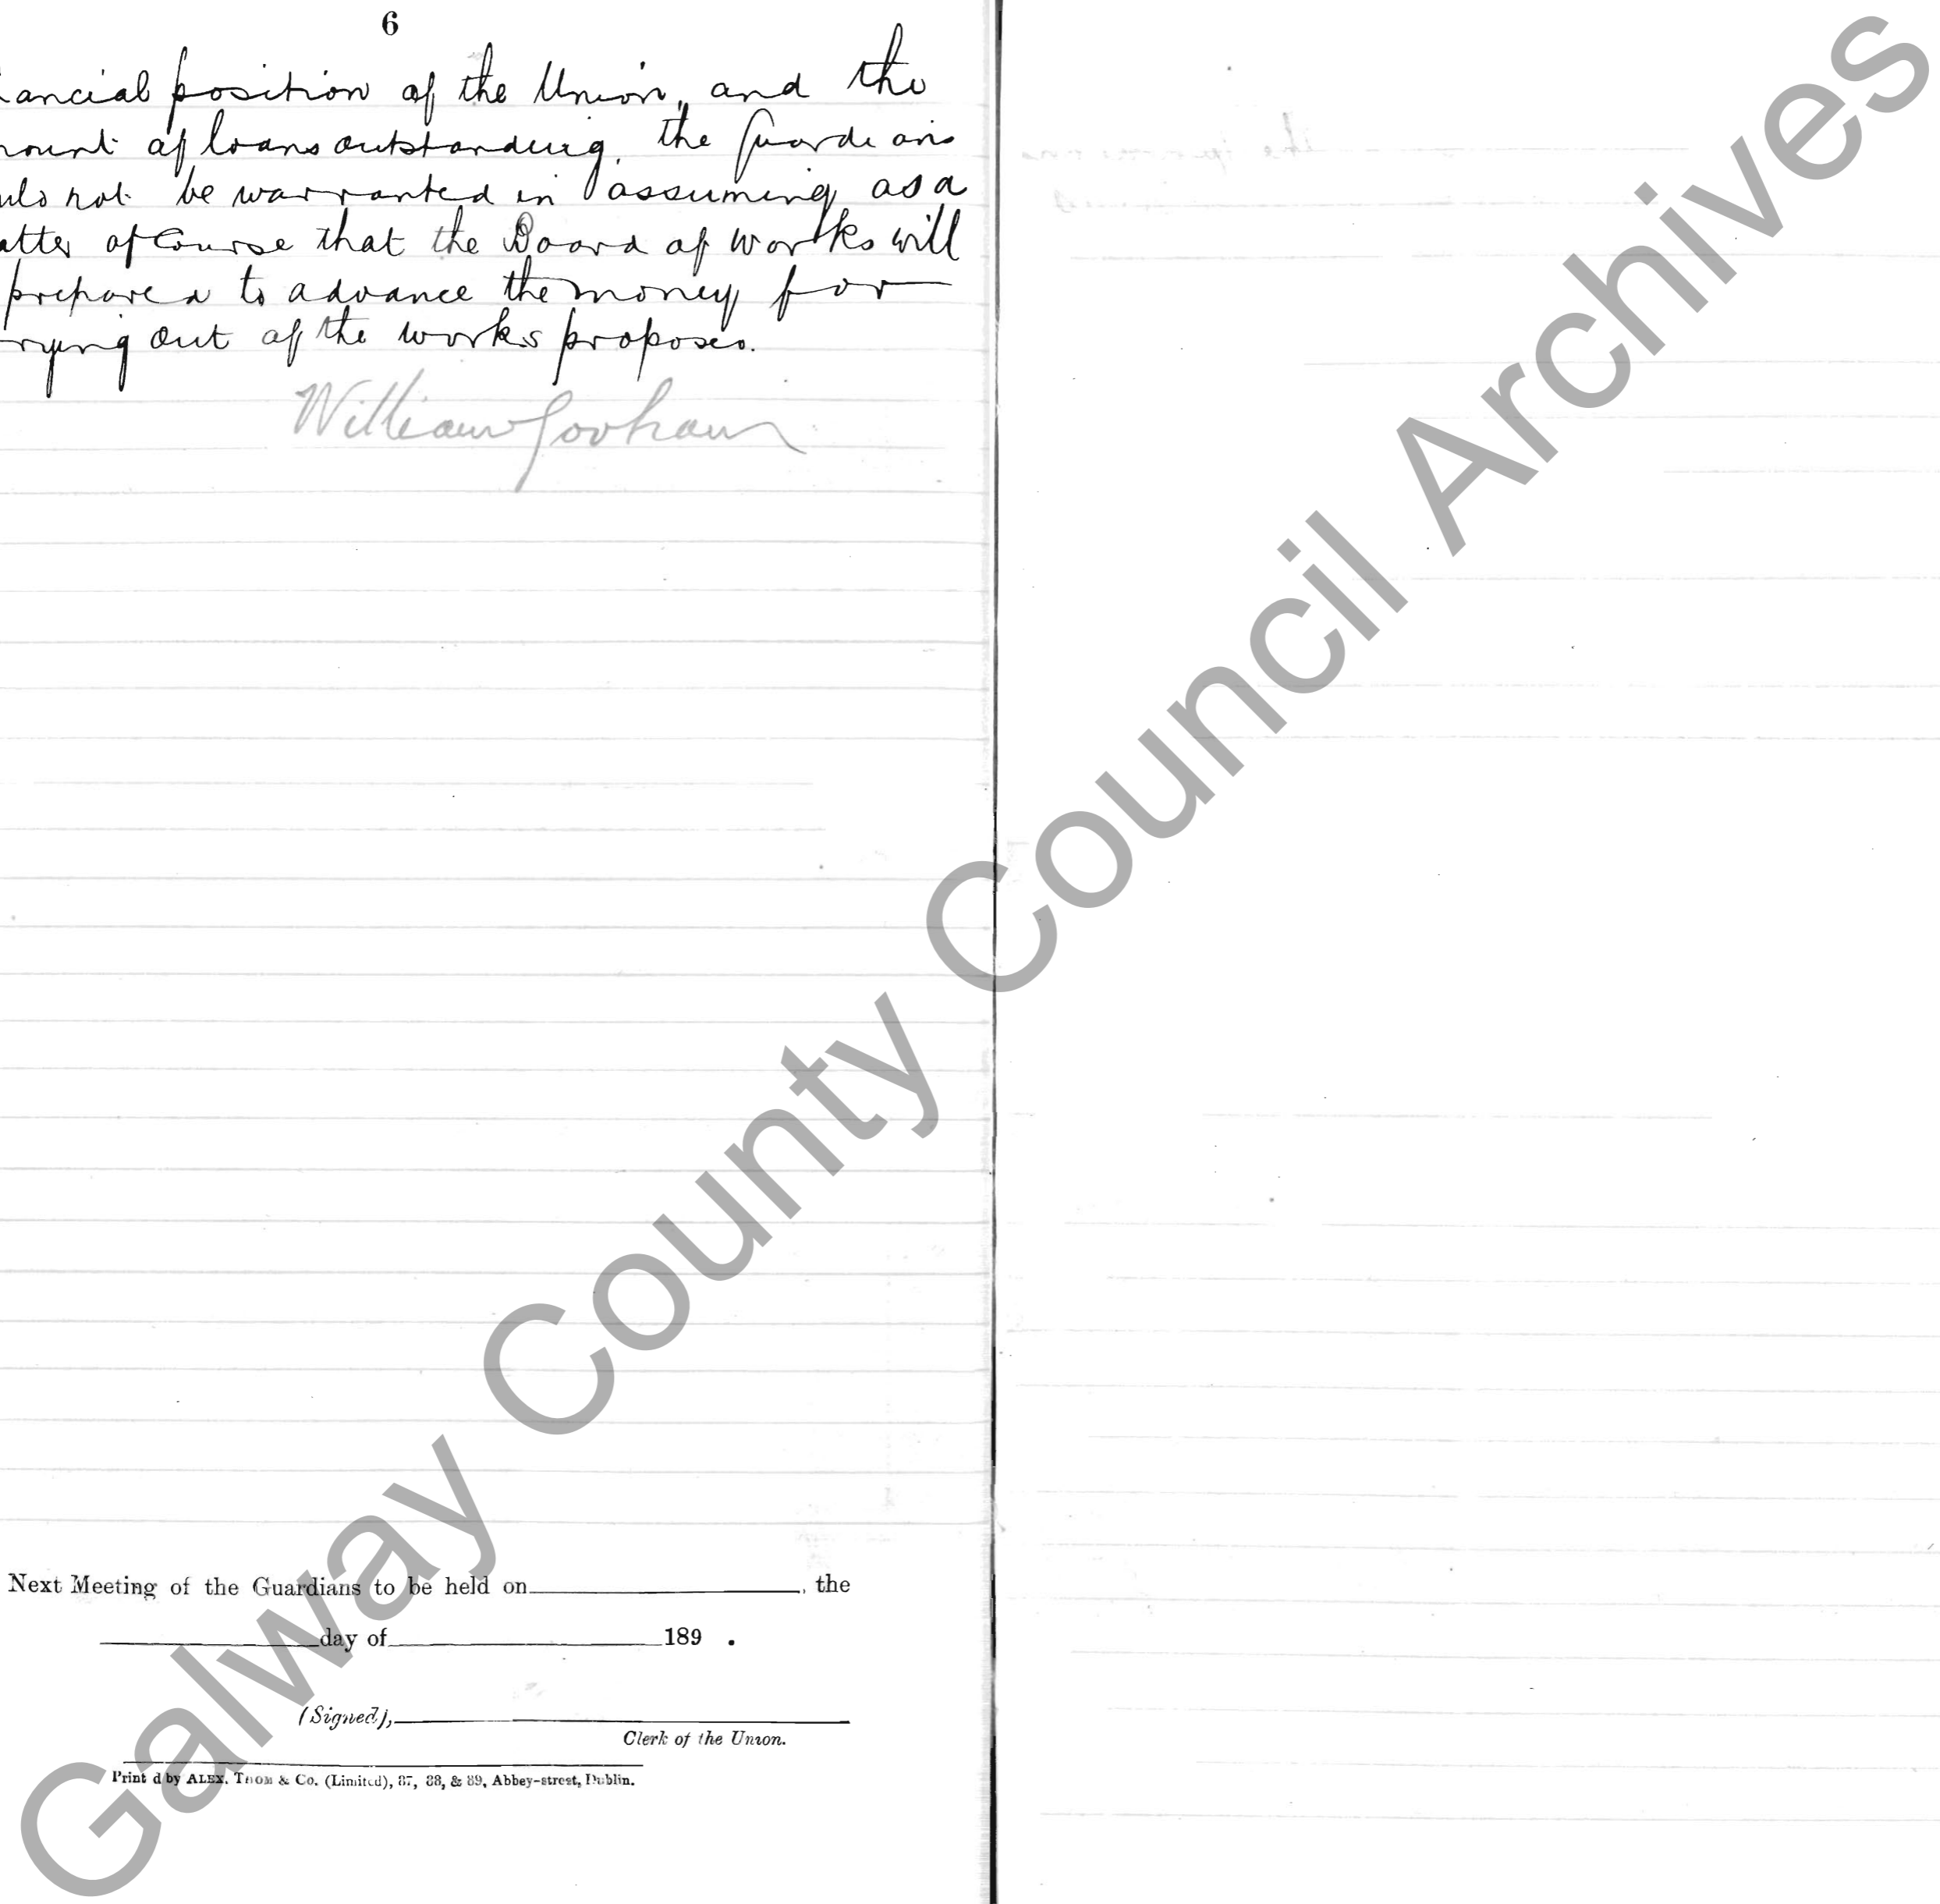 6
ancial position of the Union, and the
ount of loans outstanding, the Guardians
uld not be warranted in assuming as a
atter of Course that the Board of Works will
prepared to advance the money for
rying out of the works proposed.
William Gorham
Next Meeting of the Guardians to be held on , the
day of 189 .
(Signed),
Clerk of the Union.
Print d by ALEX. THOM & Co. (Limited), 87, 88, & 89, Abbey-street, Dublin.
Galway County Council Archives